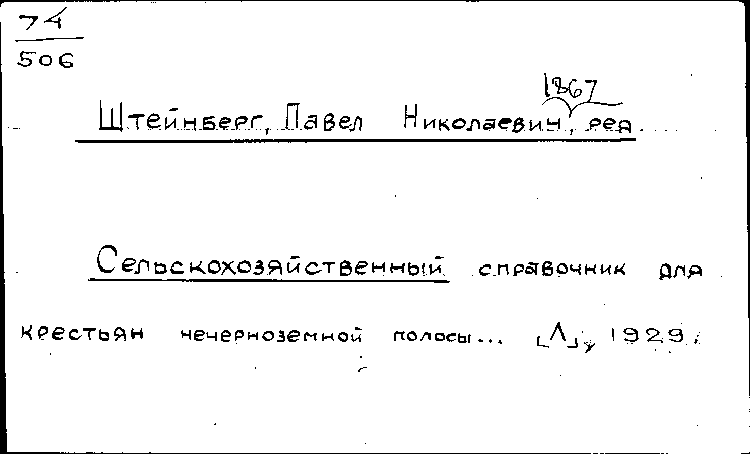 74
506
1867
Штейнберг, Павел Николаевич, ред.
Сельскохозяйственный справочник для
крестьян нечерноземной полосы... [Л], 1929.